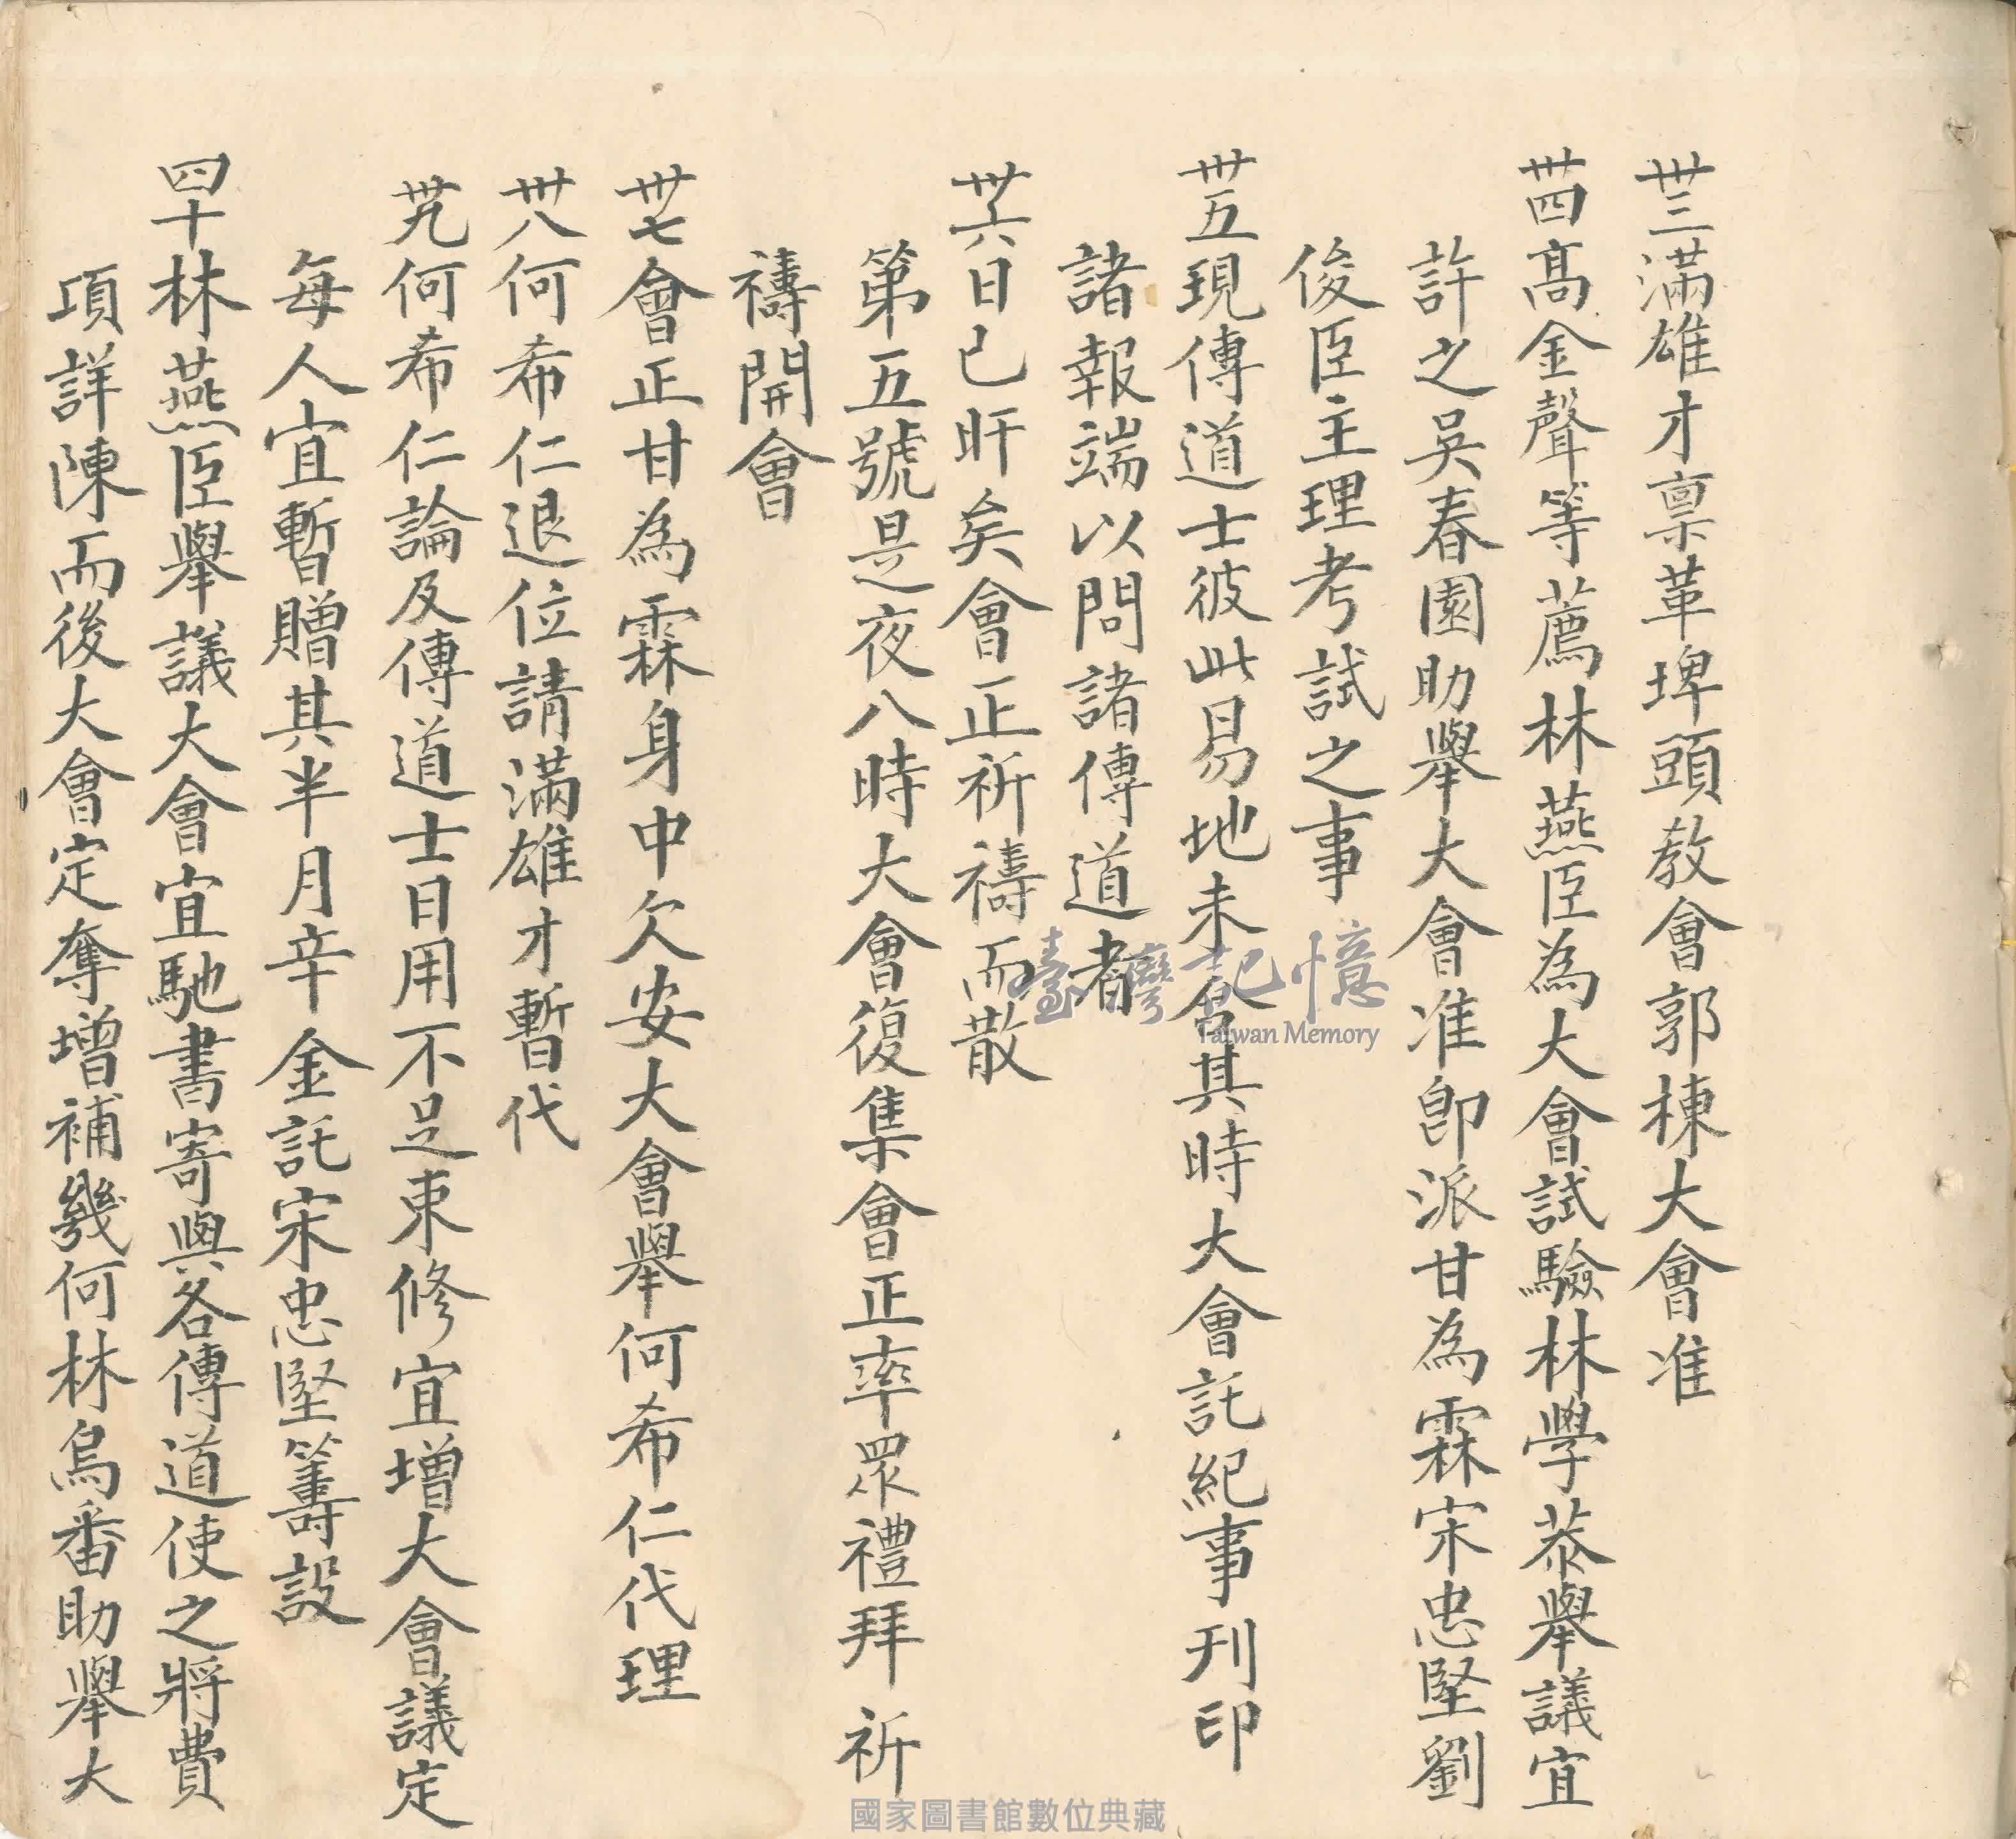 卅三滿雄才禀革埤頭教會郭棟大會准
卅四高金聲等薦林燕臣為大會試驗林學恭舉議宜
許之吳春園助舉大會准卽派甘為霖宋忠堅劉
俊臣主理考試之事
卅五現傳道士彼此易地未合其時大會託紀事刊印
諸報端以問諸傳道者
卅六日已旰矣會正祈禱而散
第五號是夜八時大會復集會正率眾禮拜祈
禱開會
卅七會正甘為霖身中欠安大會舉何希仁代理
卅八何希仁退位請滿雄才暫代
卅九何希仁論及傳道士日用不足束修宜增大會議定
每人宜暫贈其半月辛金託宋忠堅籌設
四十林燕臣舉議大會宜馳書寄與各傳道使之將費
項詳陳而後大會定奪增補幾何林烏番助舉大
臺灣記憶
Taiwan Memory
國家圖書館數位典藏